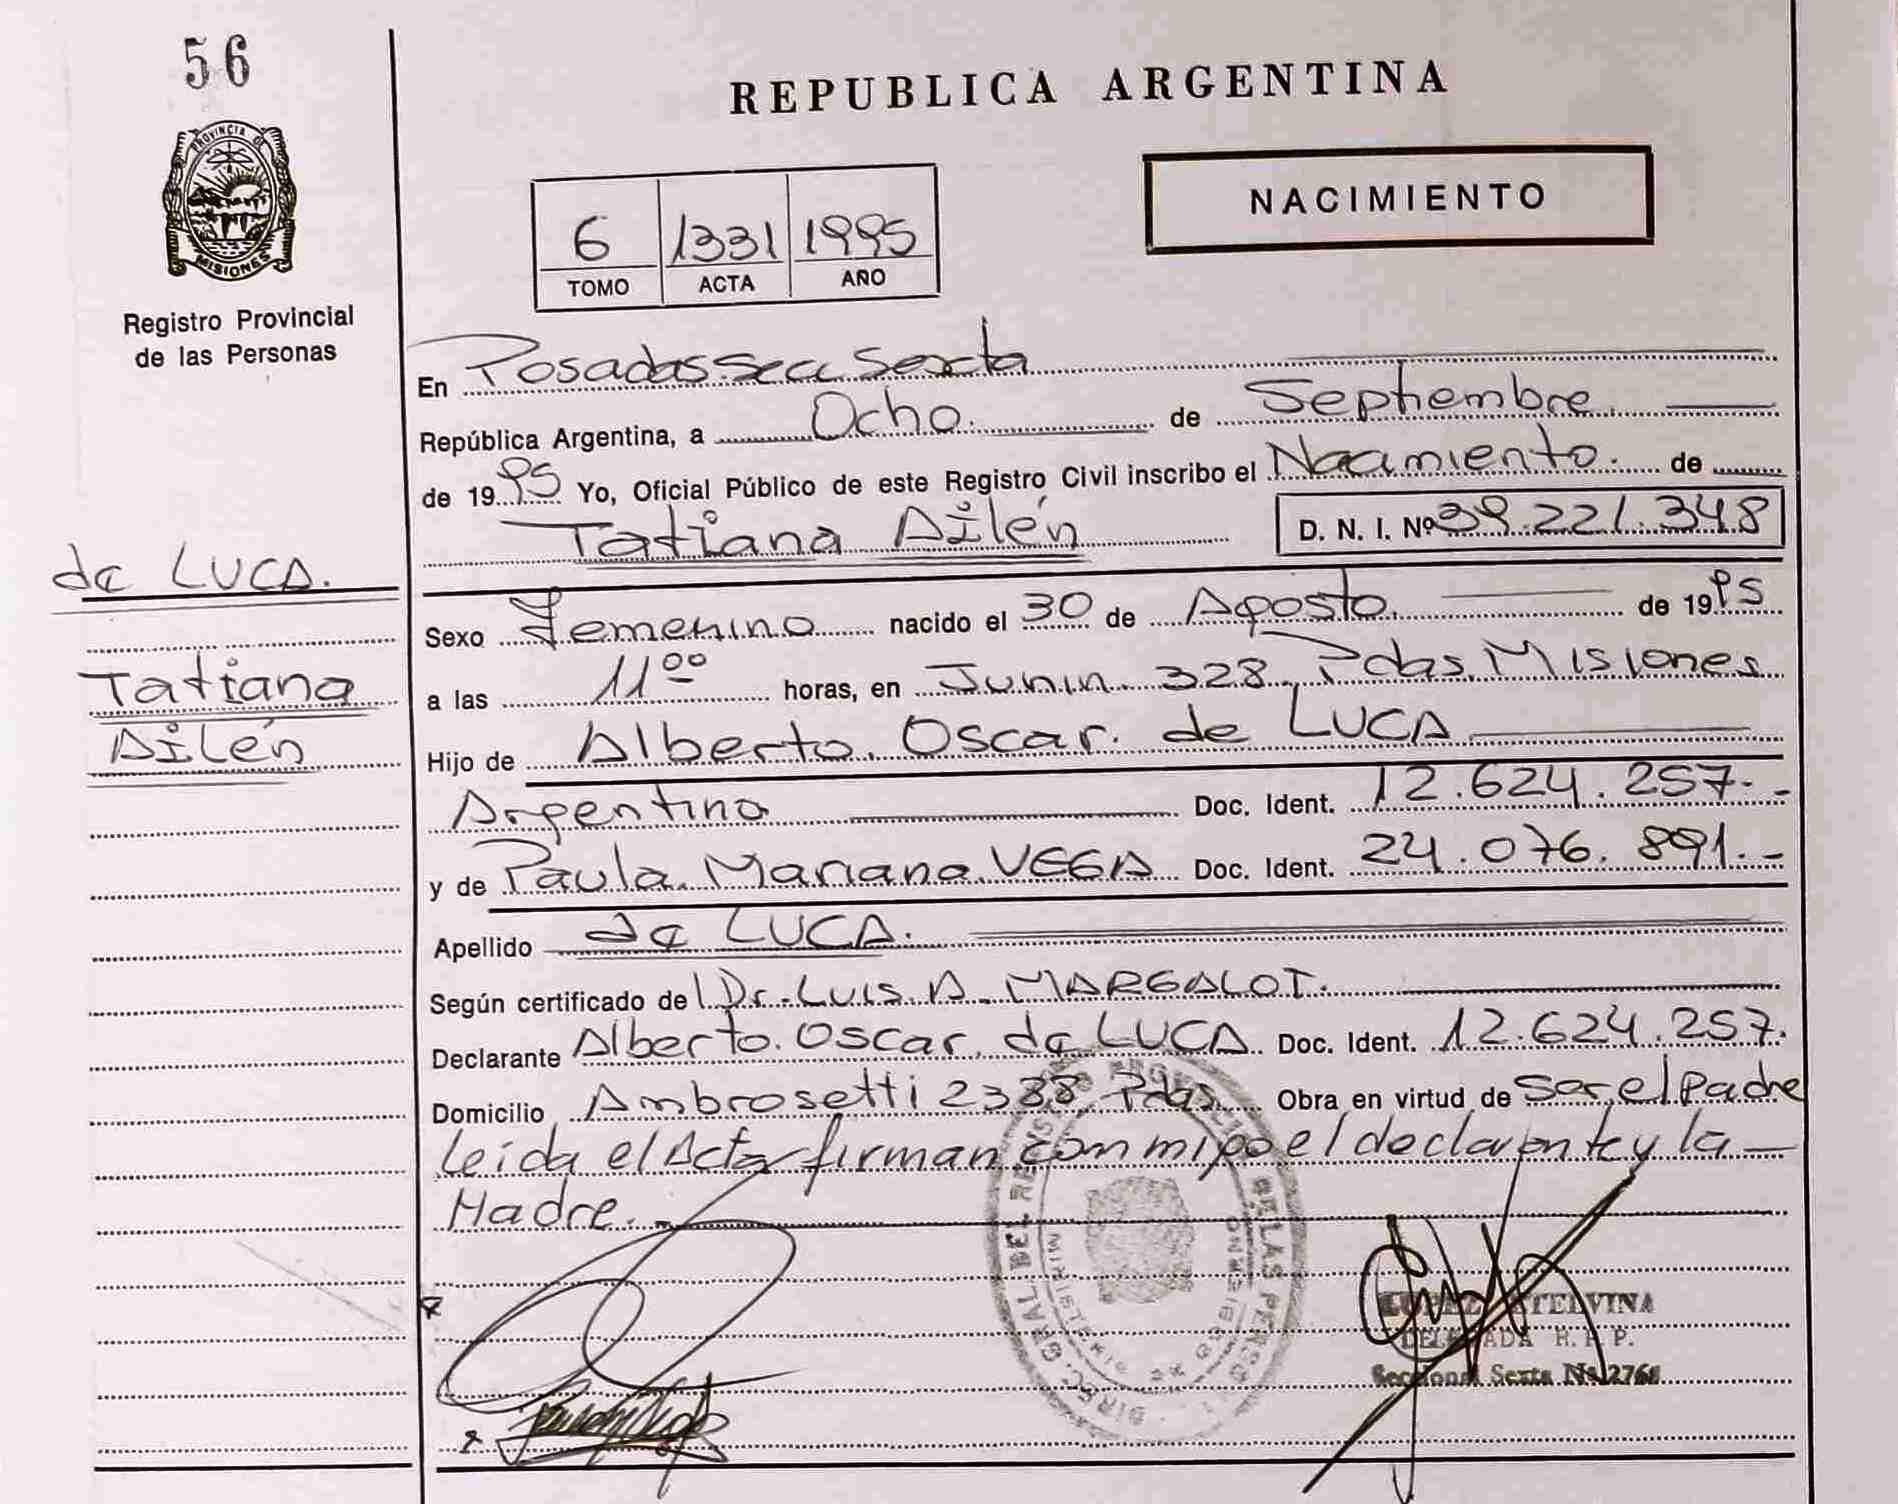 56
PROVINCIA DE
MISIONES
Registro Provincial
de las Personas
REPUBLICA ARGENTINA
NACIMIENTO
6 1331 1995
TOMO ACTA AÑO
En Posadas Secc Sexta
República Argentina, a Ocho. de Septiembre
de 1995 Yo, Oficial Público de este Registro Civil inscribo el Nacimiento. de
Tatiana Ailén D. N. I. Nº 39.221.348
de LUCA.
Tatiana
Ailén
Sexo Femenino nacido el 30 de Agosto. de 1995
a las 11⁰⁰ horas, en Junin 328 Pdas. Misiones
Hijo de Alberto Oscar de LUCA
Argentina Doc. Ident. 12.624.257.-
y de Paula Mariana VEGA Doc. Ident. 24.076.891.-
Apellido de LUCA.
Según certificado del Dr. LUIS A. MARGALOT.
Declarante Alberto Oscar de LUCA Doc. Ident. 12.624.257.
Domicilio Ambrosetti 2388 Pdas. Obra en virtud de Ser el Padre
leida el Acta firman conmigo el declarante y la
Madre.
DIREC. GRAL DEL REGISTRO PROVINCIAL DE LAS PERSONAS
MINISTERIO DE GOBIERNO
ETELVINA
DELEGADA R. P. P.
Seccional Sexta Nº 2768